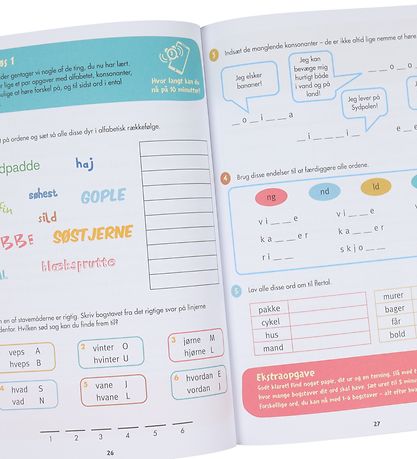 øs 1
der gentager vi nogle af de ting, du nu har lært.
er lige et par opgaver med alfabetet, konsonanter,
ulige at høre forskel på, og til sidst ord i ental
al.
Hvor langt kan du
nå på 10 minutter?
t på ordene og sæt så alle disse dyr i alfabetisk rækkefølge.
dpadde
haj
søhest
GOPLE
sild
BBE
SØSTJERNE
blæksprutte
m en af stavemåderne er rigtig. Skriv bogstavet fra det rigtige svar på linjerne
denfor. Hvilken sød sag kan du finde frem til?
veps A
hveps B
2 vinter O
hvinter U
3 jørne M
hjørne L
4 hvad S
vad N
5 vane J
hvane L
6 hvordan E
vordan I
1 2 3 4 5 6
26
3 Indsæt de manglende konsonanter – de er ikke altid lige nemme at høre
Jeg elsker
bananer!
Jeg kan
bevæge mig
hurtigt både
i vand og på
land!
Jeg lever på
Sydpolen!
_ o _ i _ _ a
_ _ o _ o
_ i _ _ _ i _
_ _ a _ e
4 Brug disse endelser til at færdiggøre alle ordene.
ng
nd
ld
vi _ _ e
vi _ _ e
ka _ _ er
ka _ _ e
ri _ _ er
skjo _ _
5 Lav alle disse ord om til flertal.
pakke
cykel
hus
mand
murer
bager
får
bold
Ekstraopgave
Godt klaret! Find noget papir, dit ur og en terning. Slå med t
hvor mange bogstaver dit ord skal have. Sæt uret til 5 minut
forskellige ord, du kan nå med 1-6 bogstaver – alt efter hva
27